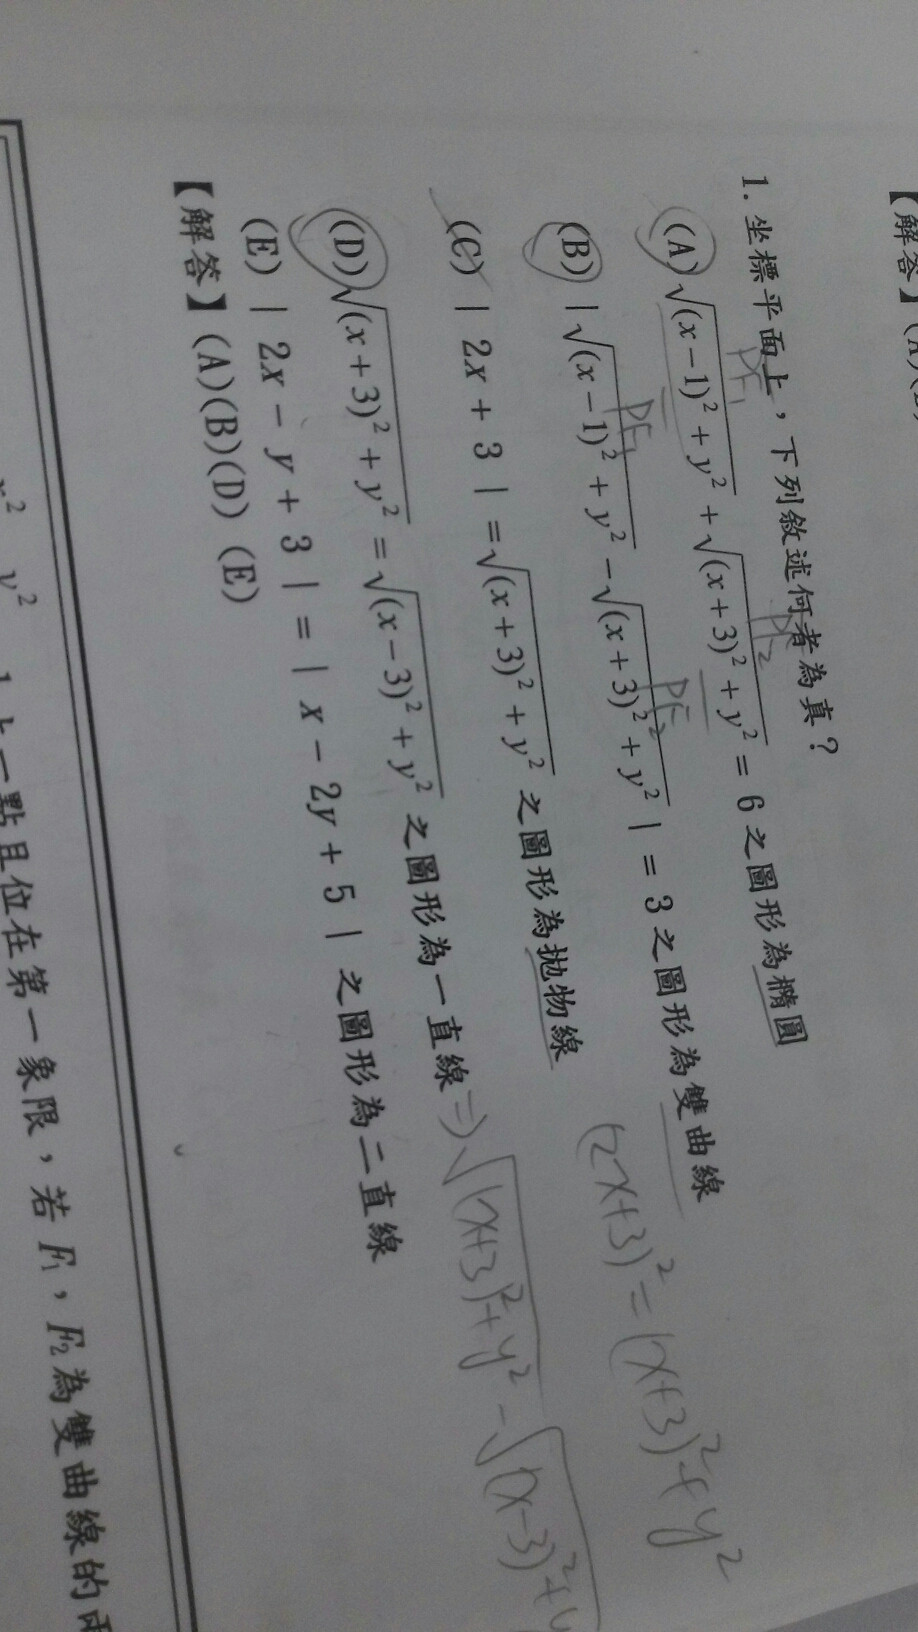 【解答】(A)(B)
1. 坐標平面上，下列敘述何者為真？
PF₁ PF₂
(A) √((x−1)²+y²) + √((x+3)²+y²) = 6 之圖形為橢圓
PF₁ PF₂
(B) | √((x−1)²+y²) − √((x+3)²+y²) | = 3 之圖形為雙曲線
(2x+3)² = (x+3)² + y²
(C) | 2x + 3 | = √((x+3)²+y²) 之圖形為拋物線
(D) √((x+3)²+y²) = √((x−3)²+y²) 之圖形為一直線 ⇒ √((x+3)²+y²) − √((x−3)²+y
(E) | 2x − y + 3 | = | x − 2y + 5 | 之圖形為二直線
【解答】(A)(B)(D) (E)
x² y² 1 上一點且位在第一象限，若 F₁，F₂ 為雙曲線的兩